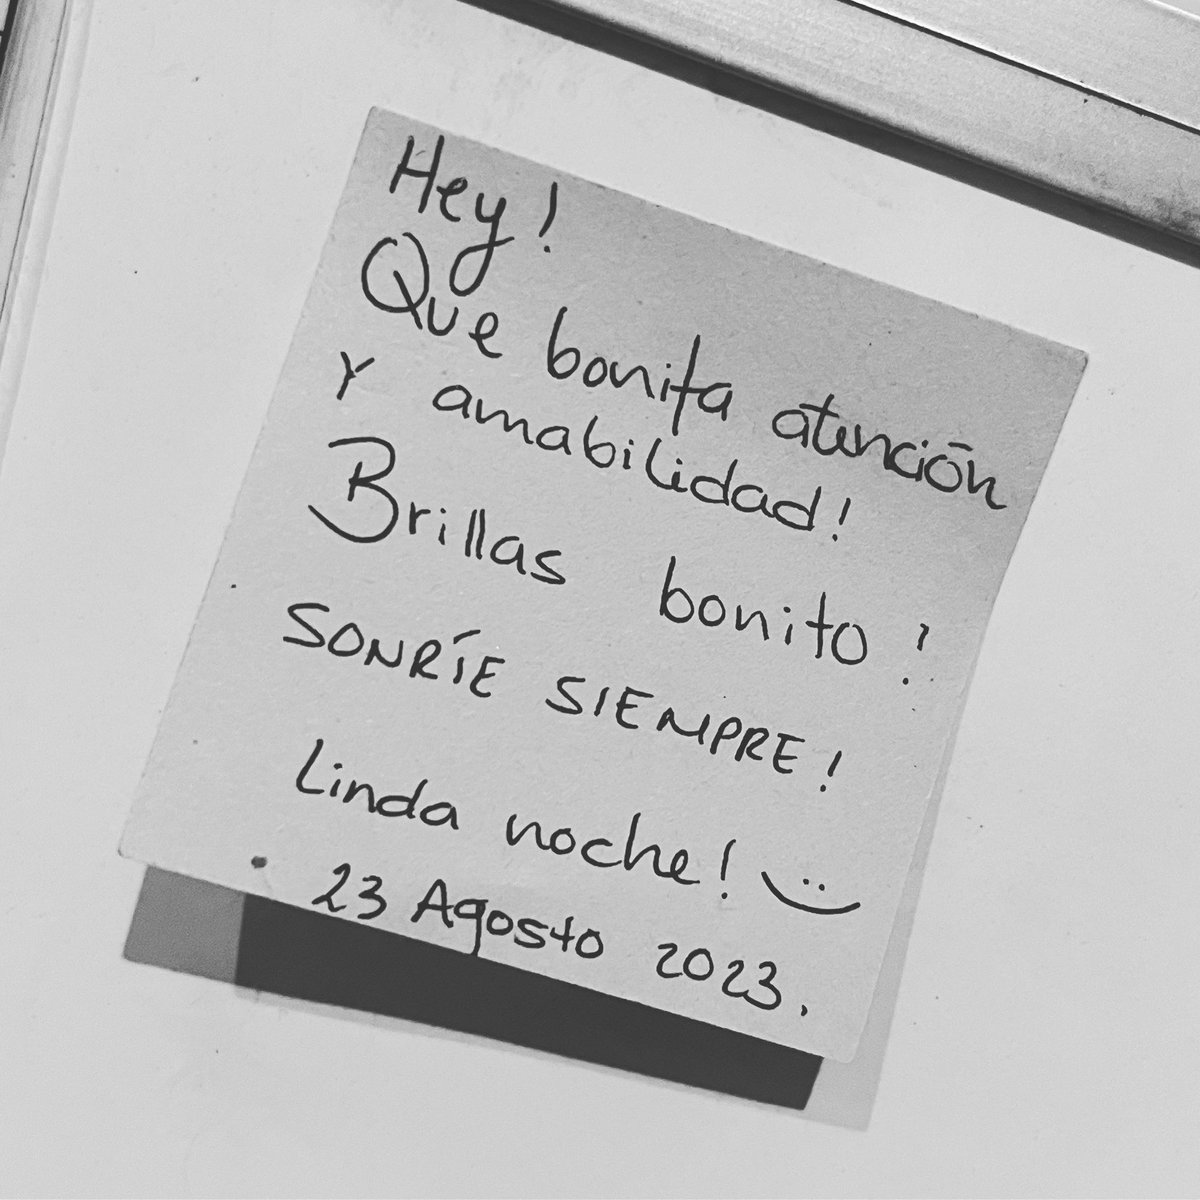 Hey!
Que bonita atención
Y amabilidad!
Brillas bonito!
SONRÍE SIEMPRE!
Linda noche!
23 Agosto 2023.